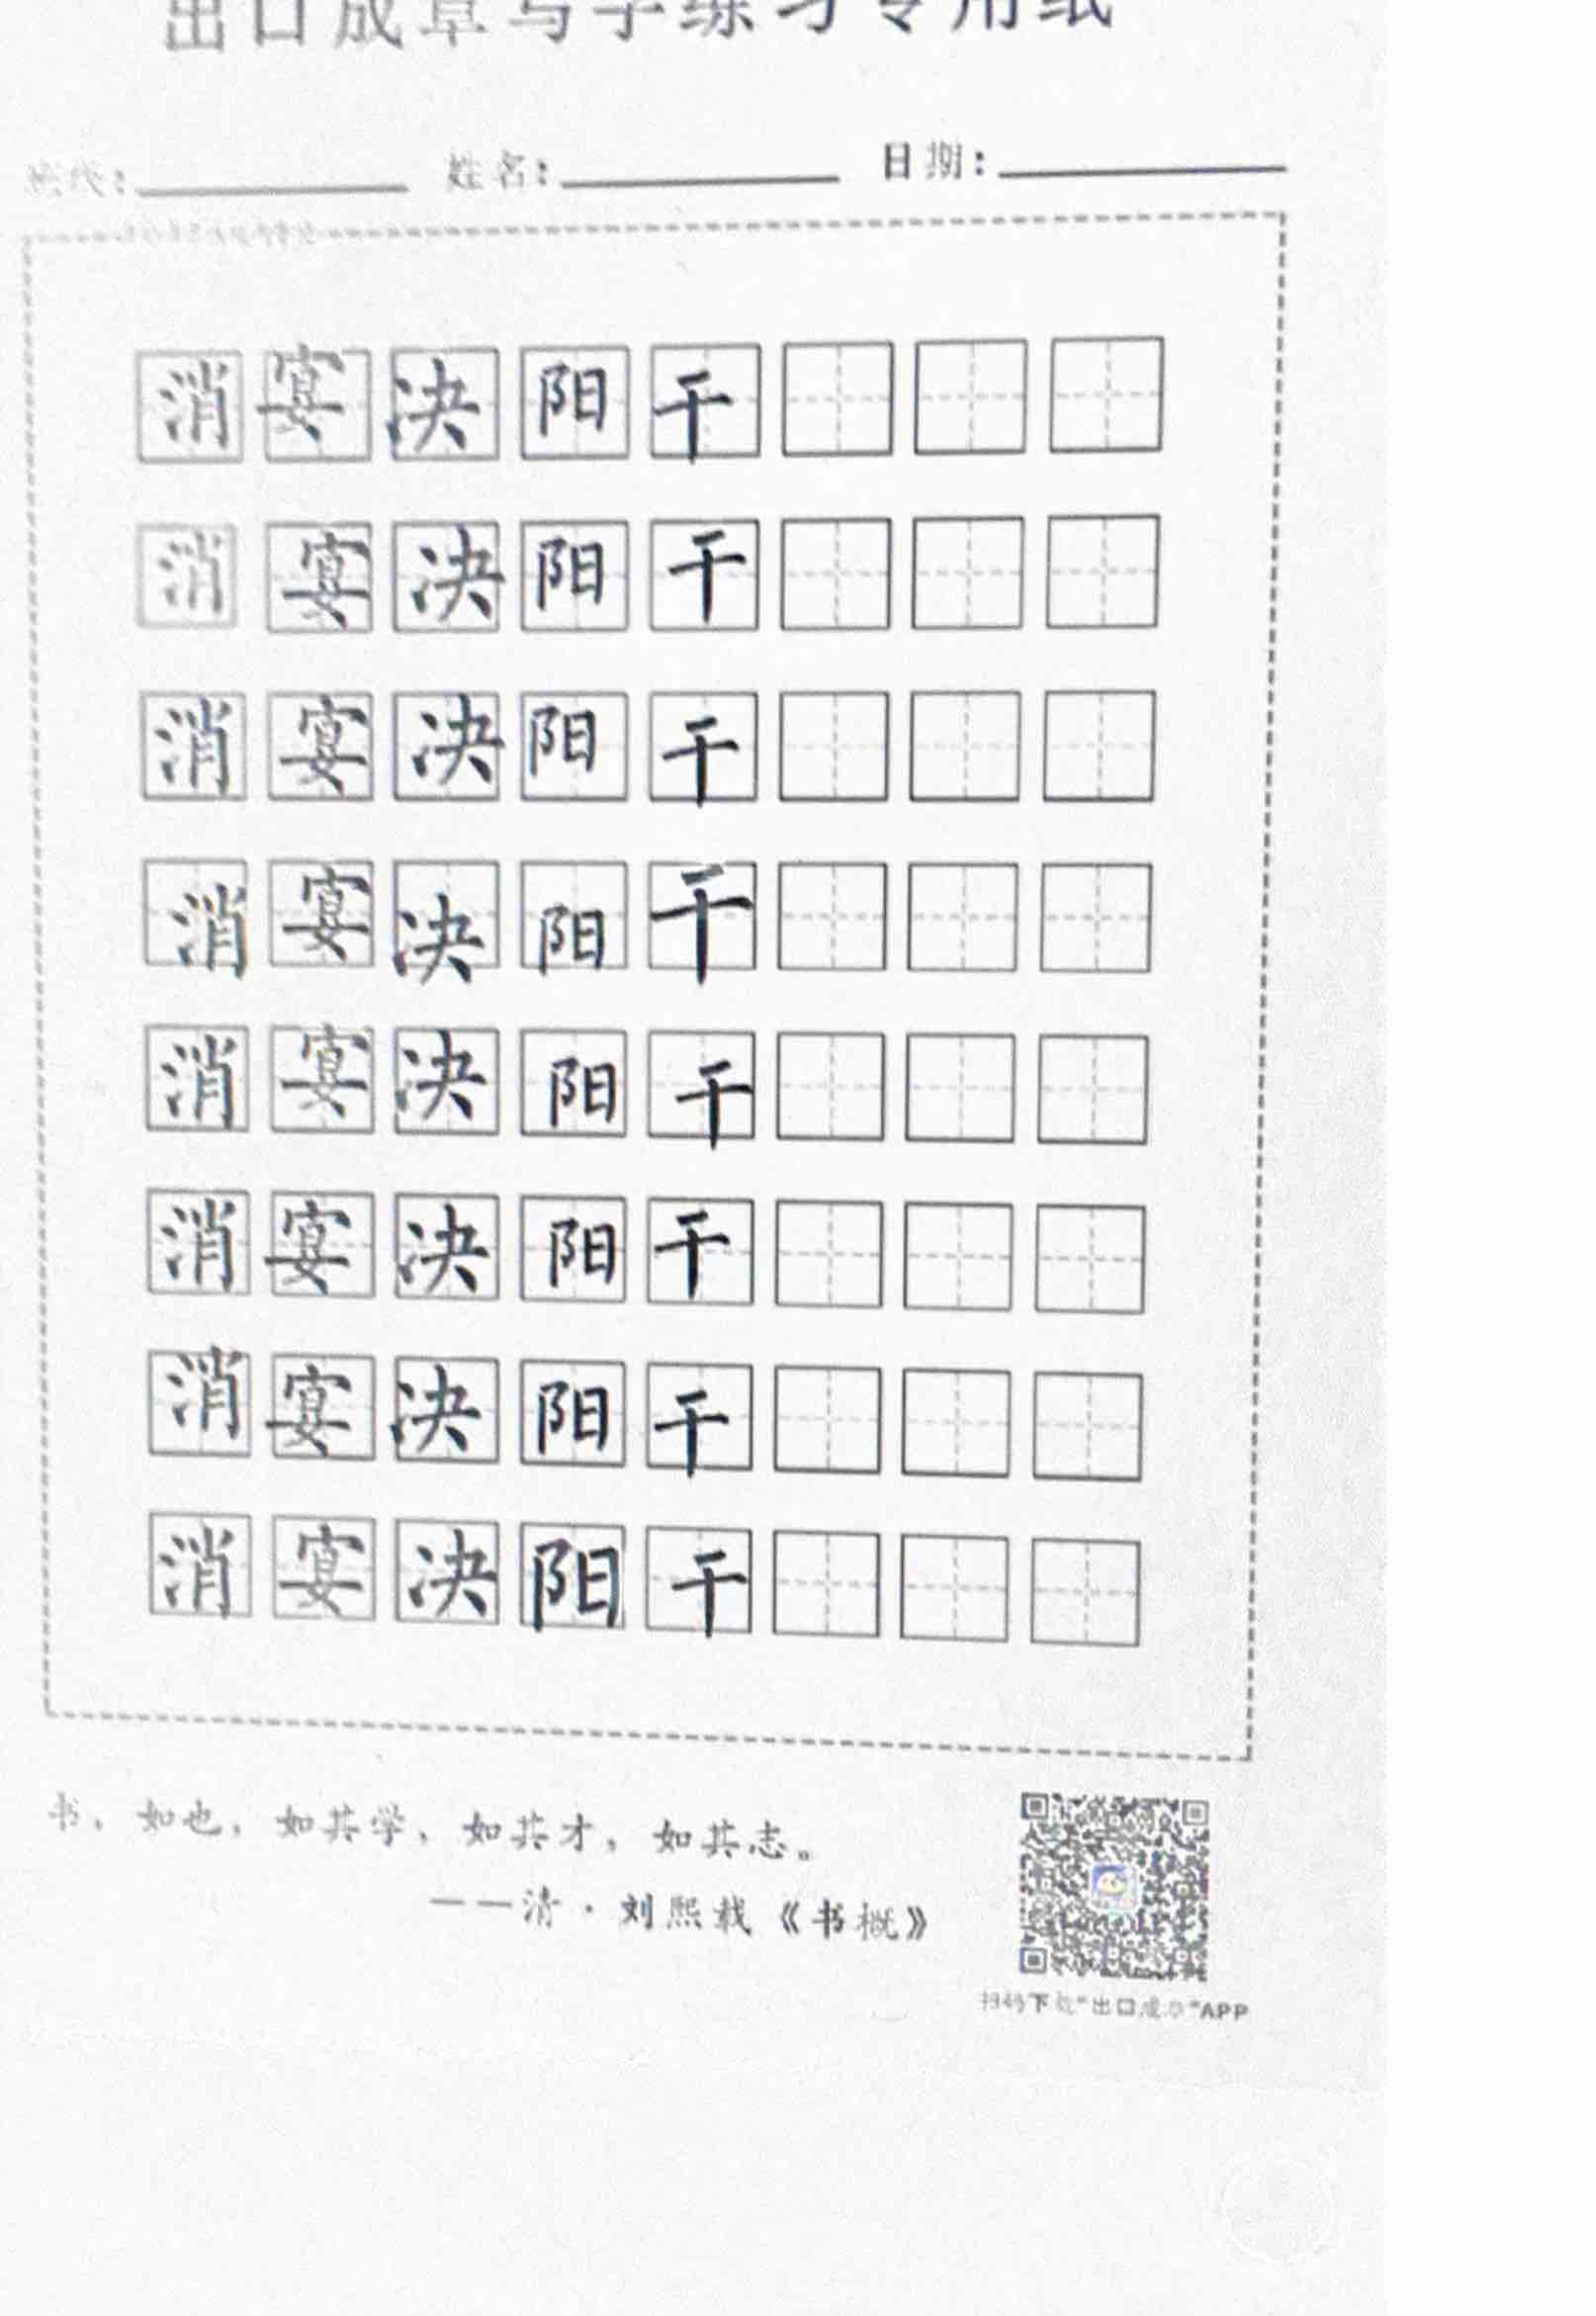 出口成章写字练习专用纸
班级：
姓名：
日期：
消宴决阳干
消宴决阳干
消宴决阳干
消宴决阳干
消宴决阳干
消宴决阳干
消宴决阳干
消宴决阳干
书，如也，如其学，如其才，如其志。
——清·刘熙载《书概》
扫码下载“出口成章”APP